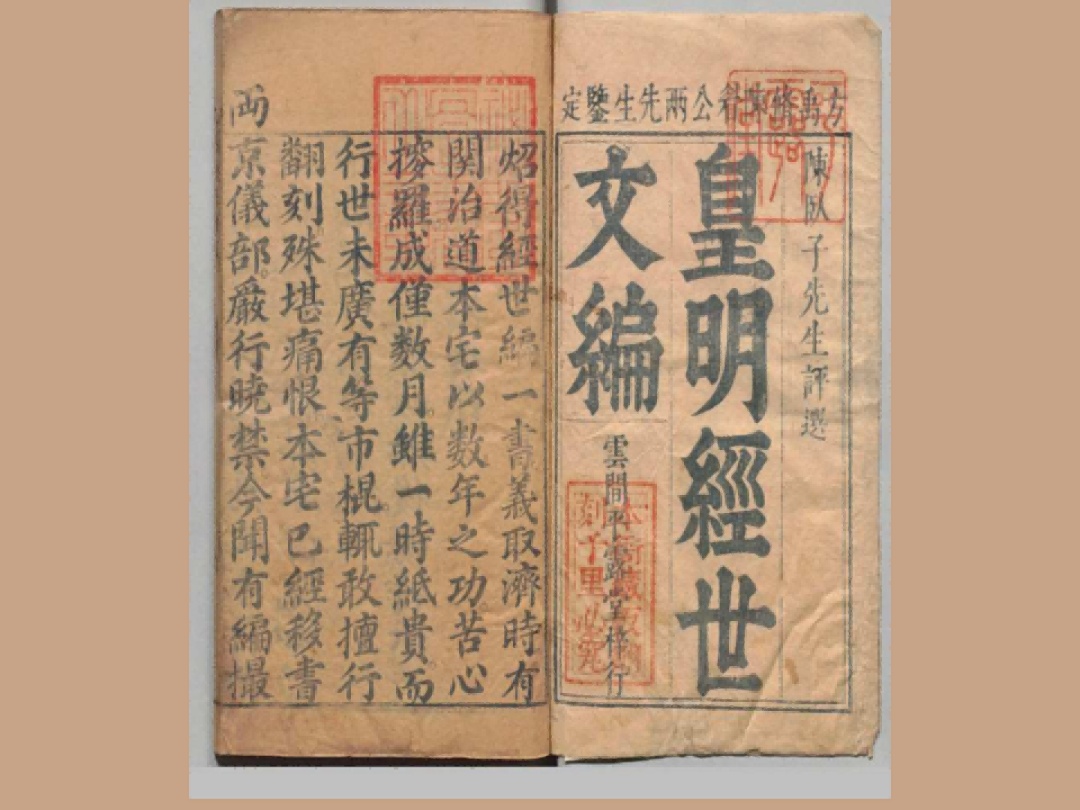 方禹脩陳眉公兩先生鑒定
陳臥子先生評選
皇明經世
文編
雲間平露堂梓行
本衙藏板翻
刻千里必究
炤得經世編一書義取濟時有
関治道本宅以数年之功苦心
搜羅成僅数月雖一時紙貴而
行世未廣有等市棍輒敢擅行
翻刻殊堪痛恨本宅已經移書
兩
京儀部嚴行曉禁今聞有編撮